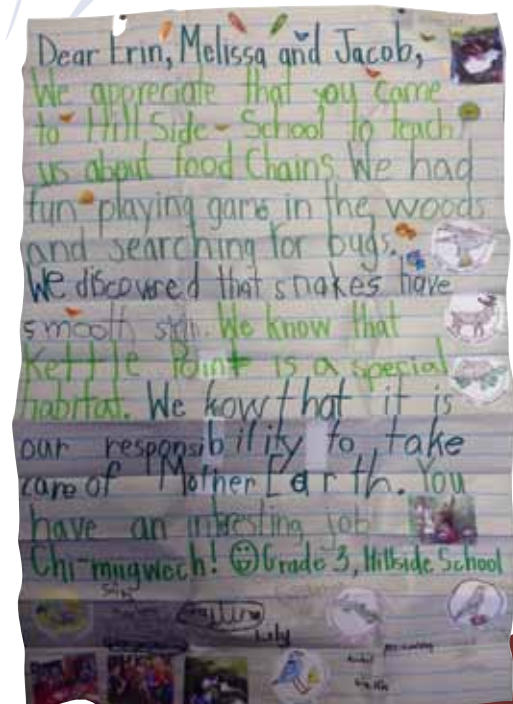 Dear Erin, Melissa and Jacob,
We appreciate that you came
to Hill Side School to teach
us about food Chains. We had
fun playing game in the woods
and searching for bugs.
We discovered that snakes have
smooth skin. We know that
Kettle Point is a special
habitat. We kow that it is
our responsibility to take
care of Mother Earth. You
have an intresting job
Chi-miigwech! Grade 3, Hillside School